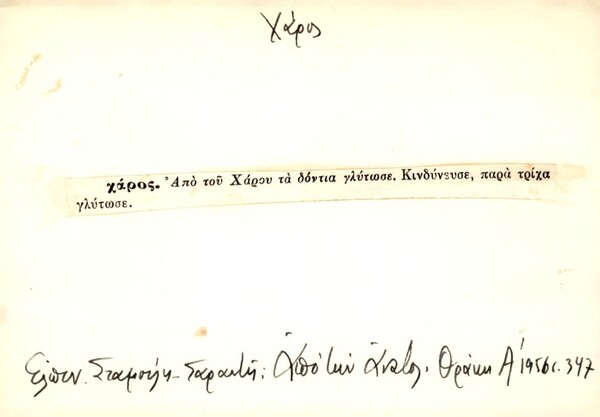 Χάρος
χάρος. Ἀπὸ τοῦ Χάρου τὰ δόντια γλύτωσε. Κινδύνευσε, παρὰ τρίχα
γλύτωσε.
Ἐλπιν. Σταμούλη-Σαραντῆ: Ἀπὸ τὴν Ἀνατολ. Θράκη Α' 1956 σ. 347